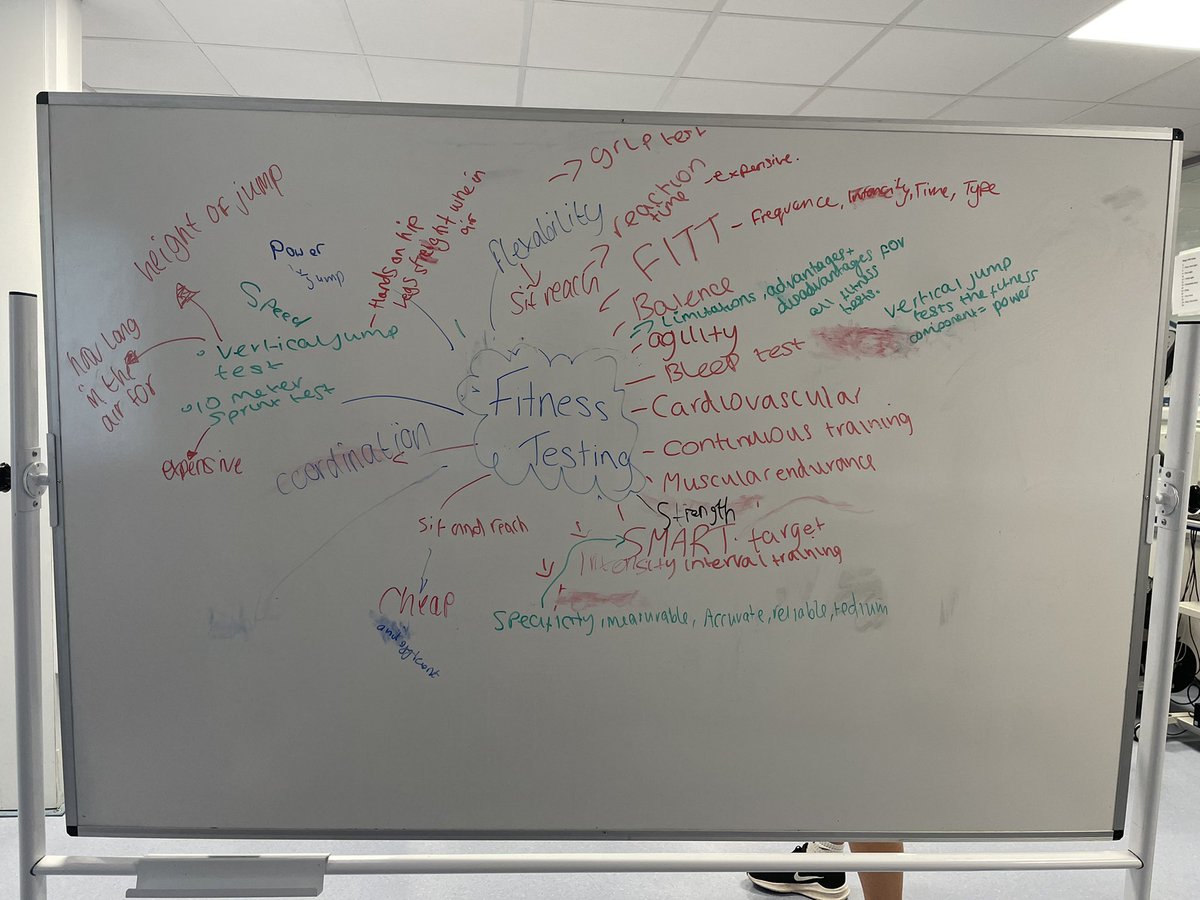 grip test
reaction
time
-expensive.
FITT - Frequance, Intencity, Time, Type
Flexability
Sit reach
height of jump
Power
jump
- Hands on hip
Legs streight whe in
air
Speed
• vertical jump
test
• 10 meter
sprint test
how long
in the
air for
expensive
Balence
Limitations, advantages +
disadvantages for
all fitness
tests.
agility
Bleep test
vertical jump
tests the fitness
component = power
Fitness
Testing
- Cardiovascular
- continuous training
Muscular endurance
Strength
SMART. target
Intensity interval training
Specificity, measurable, Accurate, reliable, tedium
coordination
Sit and reach
Cheap